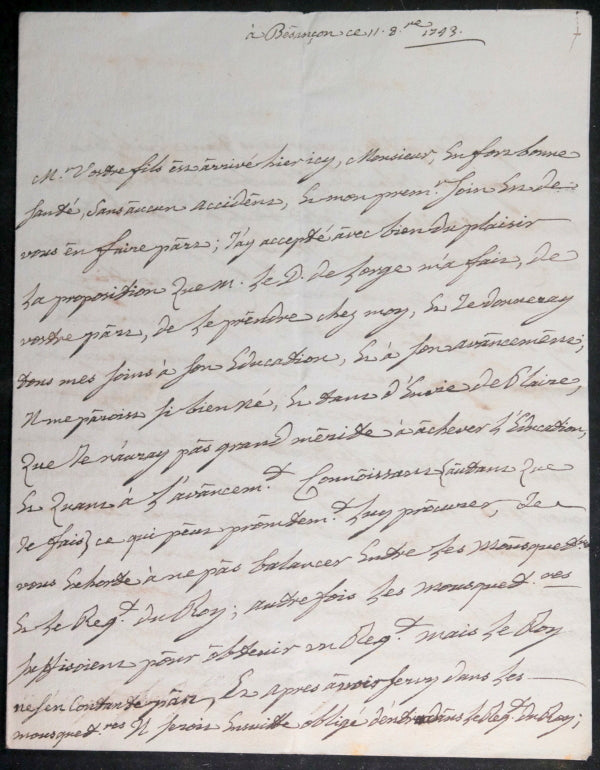 à Bésançon ce 11. 8.re 1743.
M.r Vostre fils est arrivé hier icy, Monsieur, en fort bonne
santé, sans aucun accident, et mon prem.r soin est de
vous en faire part; j'ay accepté avec bien du plaisir
la proposition que M. le D. de Lorge m'a fait, de
vostre part, de le prendre chez moy, et je donneray
tous mes soins à son éducation, et à son avancement;
il me paroist si bien né, et tant d'envie de plaire,
que je n'auray pas grand mérite à achever l'éducation,
et quant à l'avancem.t connoissant (autant que
je fais) ce qui peut promtem.t luy procurer, je
vous exhorte à ne pas balancer entre les mousquet.res
et le Reg.t du Roy; autrefois les mousquet.res
suffisoient pour obtenir un Reg.t mais le Roy
ne s'en contante pas, et apres avoir servy dans les
mousquet.res il seroit ensuitte obligé d'entrer dans le Reg.t du Roy;